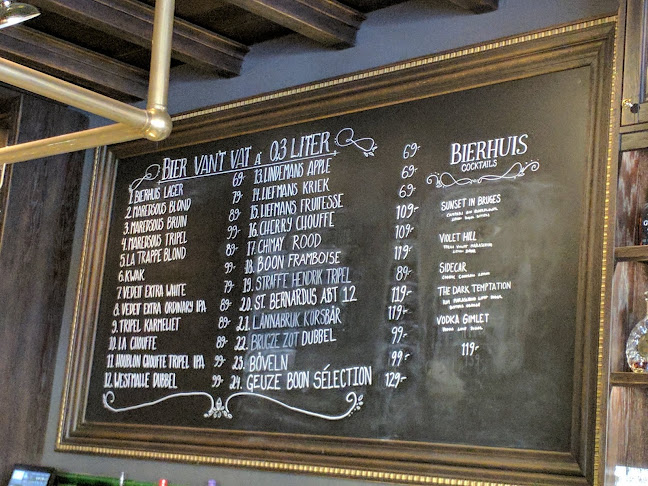 BIER VAN'T VAT Á 0.3 LITER
1. BIERHUIS LAGER 69-
2. MAREDSOUS BLOND 79-
3. MAREDSOUS BRUIN 89-
4. MAREDSOUS TRIPEL 99-
5. LA TRAPPE BLOND 89-
6. KWAK
7. VEDET EXTRA WHITE
8. VEDET EXTRA ORDINARY IPA
9. TRIPEL KARMELIET
10. LA CHOUFFE
11. HOUBLON CHOUFFE TRIPEL IPA 99-
12. WESTMALLE DUBBEL 99-
13. LINDEMANS APPLE 69-
14. LIEFMANS KRIEK 69-
15. LIEFMANS FRUITESSE 69-
16. CHERRY CHOUFFE 109-
17. CHMAY ROOD 109-
18. BOON FRAMBOISE 119-
19. STRAFFE HENDRIK TRIPEL 89-
20. ST. BERNARDUS ABT 12 119-
21. LANNABRUK KORSBÄR 119-
22. BRUGZE ZOT DUBBEL 99-
23. BÖVELN 99-
24. GEUZE BOON SÉLECTION 129-
BIERHUIS
COCKTAILS
SUNSET IN BRUGES
VIOLET HILL
SIDECAR
THE DARK TEMPTATION
VODKA GIMLET
119-